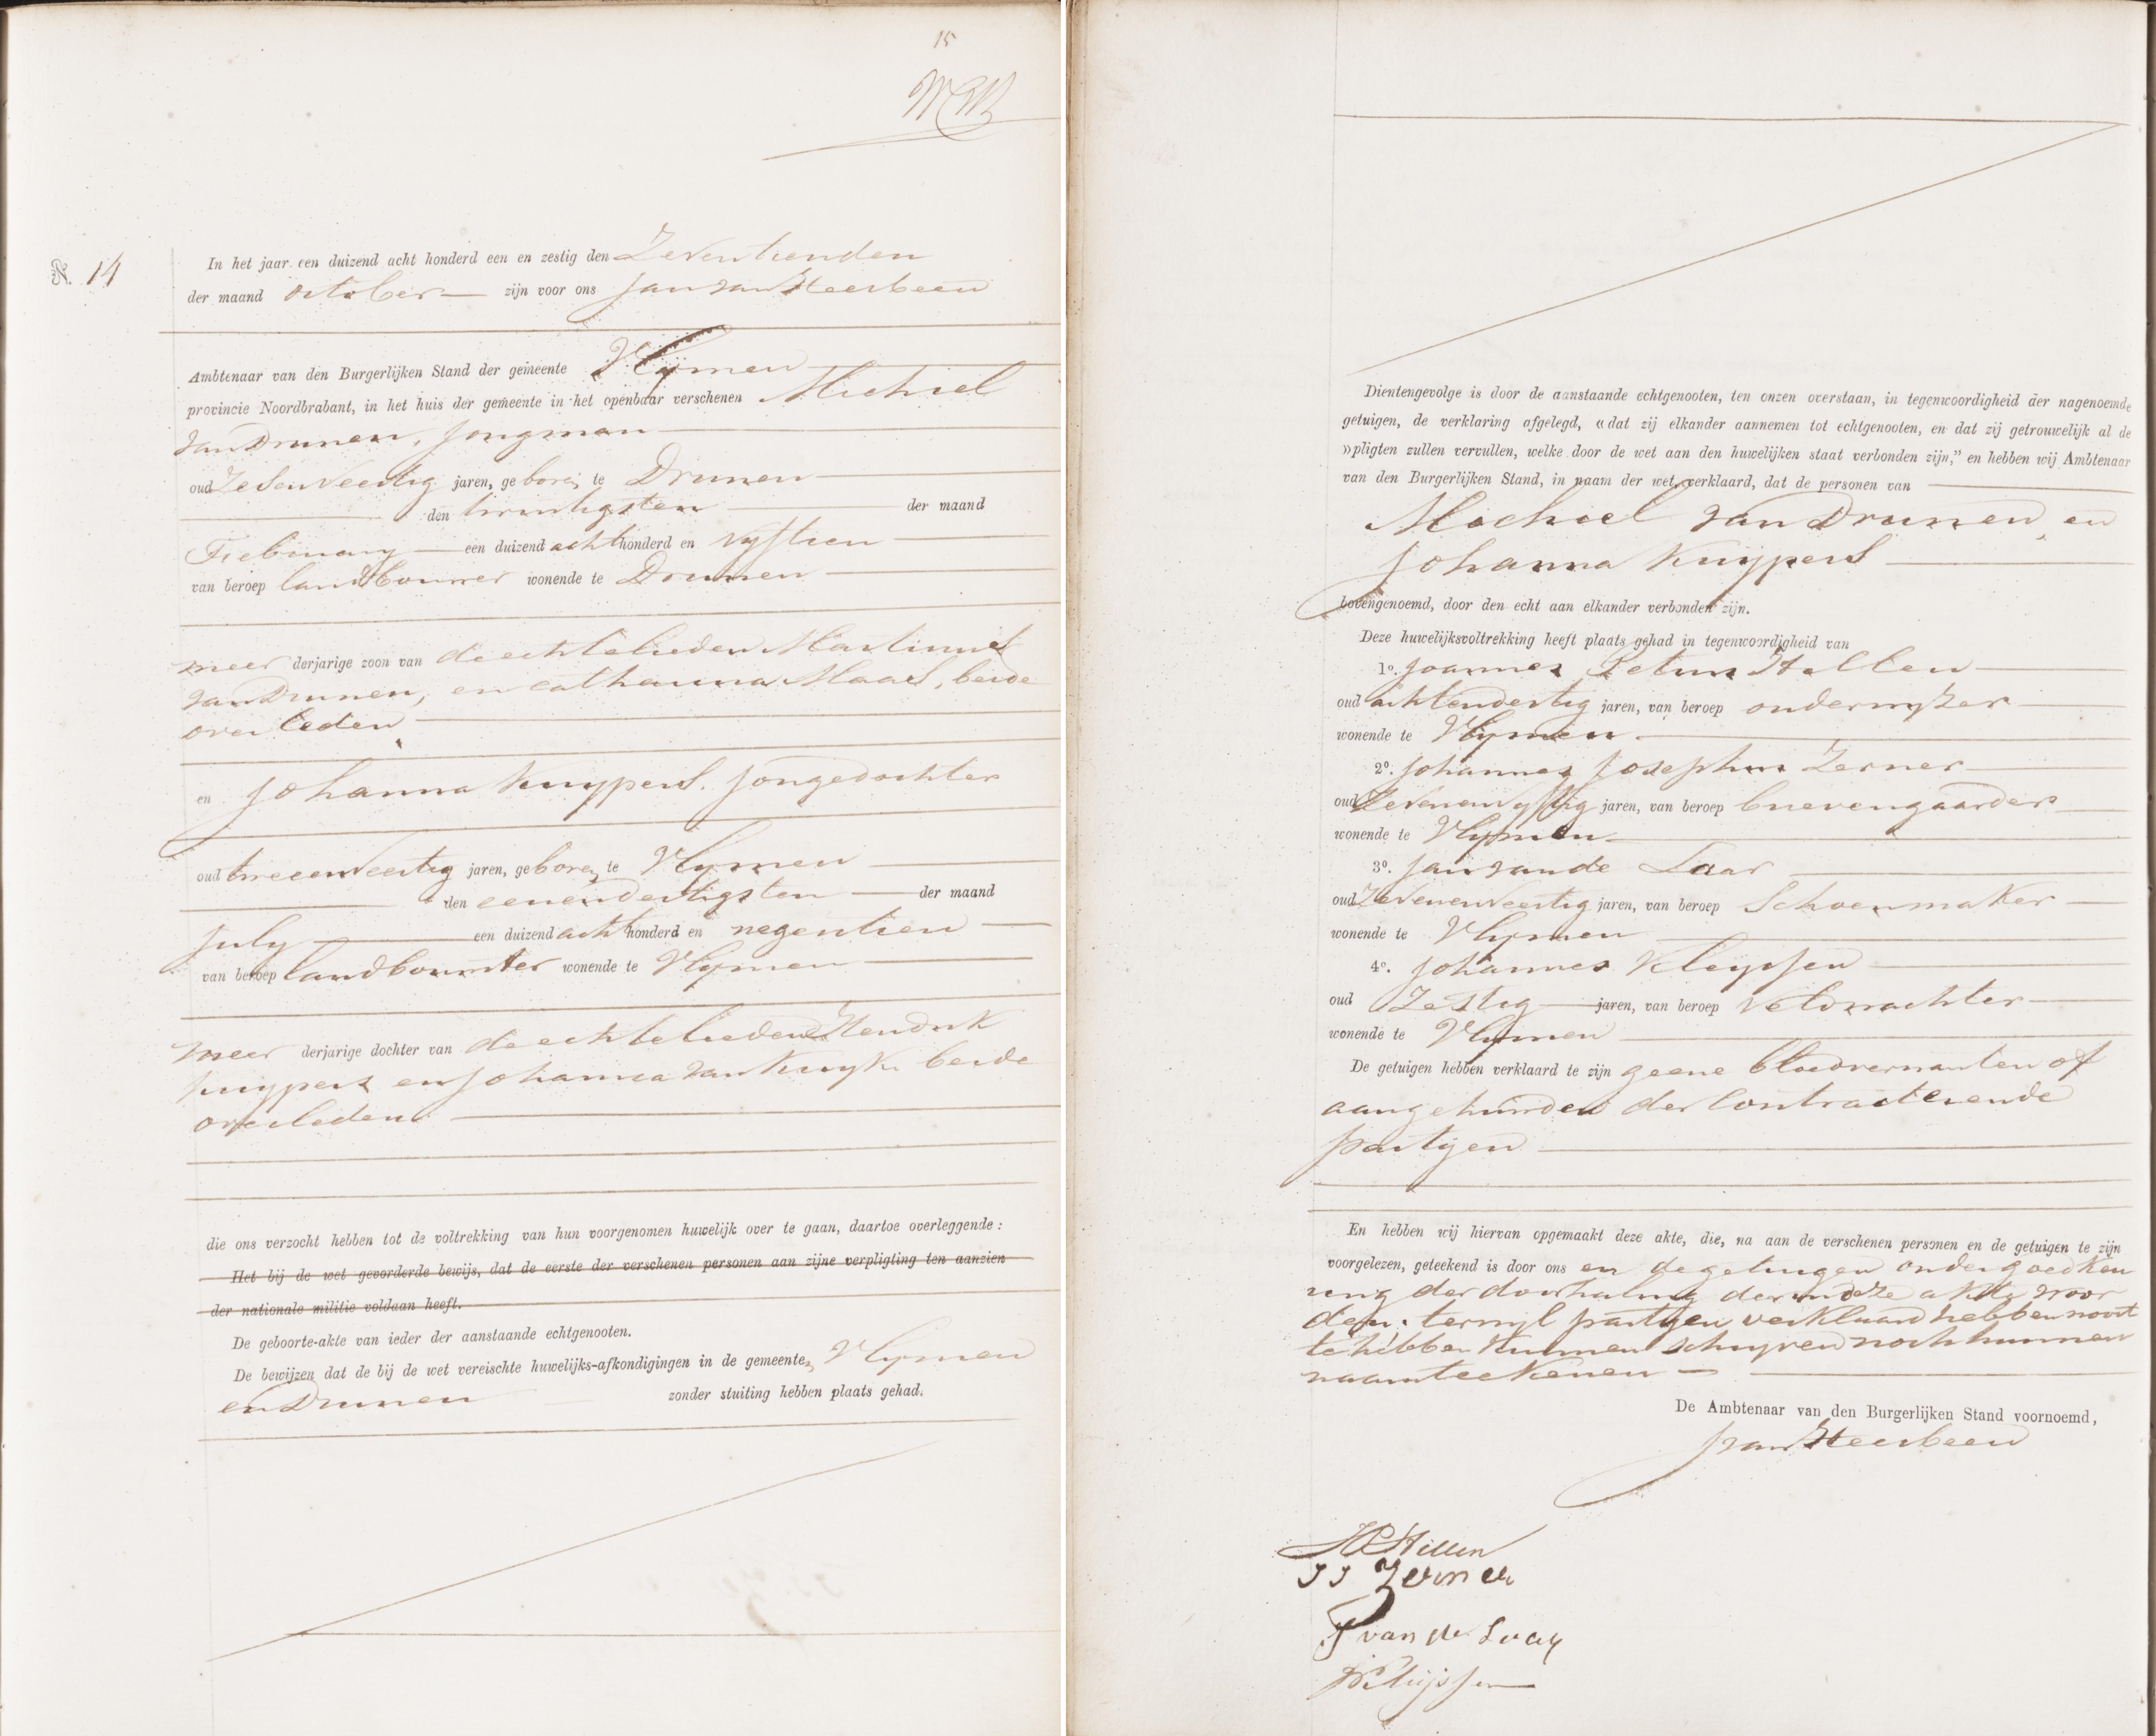 15
N. 14
In het jaar een duizend acht honderd een en zestig den Zeventienden
der maand october zijn voor ons Jan van Heesbeen
Ambtenaar van den Burgerlijken Stand der gemeente Vlymen
provincie Noordbrabant, in het huis der gemeente in het openbaar verschenen Michiel
van Drunen, jongman
oud Zesenveertig jaren, geboren te Drunen
den twintigsten der maand
Februarij een duizend acht honderd en vyftien
van beroep landbouwer wonende te Drunen
meer derjarige zoon van de echtelieden Martinus
van Drunen, en Catharina Maas, beide
overleden
en Johanna Kuypers, jongedochter
oud tweeenveertig jaren, geboren te Vlymen
den eenendertigsten der maand
July een duizend acht honderd en negentien
van beroep landbouwster wonende te Vlymen
meer derjarige dochter van de echtelieden Hendrik
Kuypers en Johanna van Kuyk beide
overleden
die ons verzocht hebben tot de voltrekking van hun voorgenomen huwelijk over te gaan, daartoe overleggende:
Het bij de wet gevorderde bewijs, dat de eerste der verschenen personen aan zijne verpligting ten aanzien
der nationale militie voldaan heeft.
De geboorte-akte van ieder der aanstaande echtgenooten.
De bewijzen dat de bij de wet vereischte huwelijks-afkondigingen in de gemeenten Vlymen
en Drunen zonder stuiting hebben plaats gehad.
Dientengevolge is door de aanstaande echtgenooten, ten onzen overstaan, in tegenwoordigheid der nagenoemde
getuigen, de verklaring afgelegd, «dat zij elkander aannemen tot echtgenooten, en dat zij getrouwelijk al de
»pligten zullen vervullen, welke door de wet aan den huwelijken staat verbonden zijn," en hebben wij Ambtenaar
van den Burgerlijken Stand, in naam der wet, verklaard, dat de personen van
Michiel van Drunen, en
Johanna Kuypers
bovengenoemd, door den echt aan elkander verbonden zijn.
Deze huwelijksvoltrekking heeft plaats gehad in tegenwoordigheid van
1o. Joannes Petrus Hillen
oud achtendertig jaren, van beroep onderwyzer
wonende te Vlymen
2o. Johannes Josephus Zerner
oud Zevenenvyftig jaren, van beroep brievengaarder
wonende te Vlymen
3o. Jan van de Laar
oud Zevenenveertig jaren, van beroep Schoenmaker
wonende te Vlymen
4o. Johannes Kleyssen
oud Zestig jaren, van beroep Veldwachter
wonende te Vlymen
De getuigen hebben verklaard te zijn geene bloedverwanten of
aangehuwden der Contracterende
partyen
En hebben wij hiervan opgemaakt deze akte, die, na aan de verschenen personen en de getuigen te zijn
voorgelezen, geteekend is door ons en de getuigen onder goedkeu
ring der doorhaling der in deze akte woor
den. terwyl partyen verklaard hebben nooit
te hebben kunnen schryven noch hunnen
naamteekenen
De Ambtenaar van den Burgerlijken Stand voornoemd,
J van Heesbeen
JP Hillen
JJ Zerner
J van de Laar